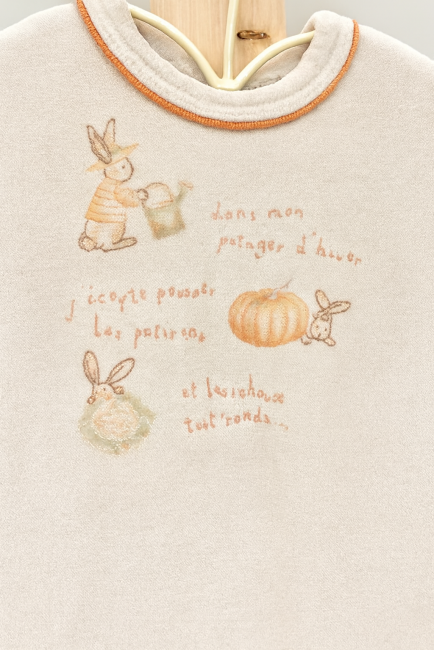 dans mon
potager d'hiver
j'écoute pousser
les potirons
et les choux
tout ronds...